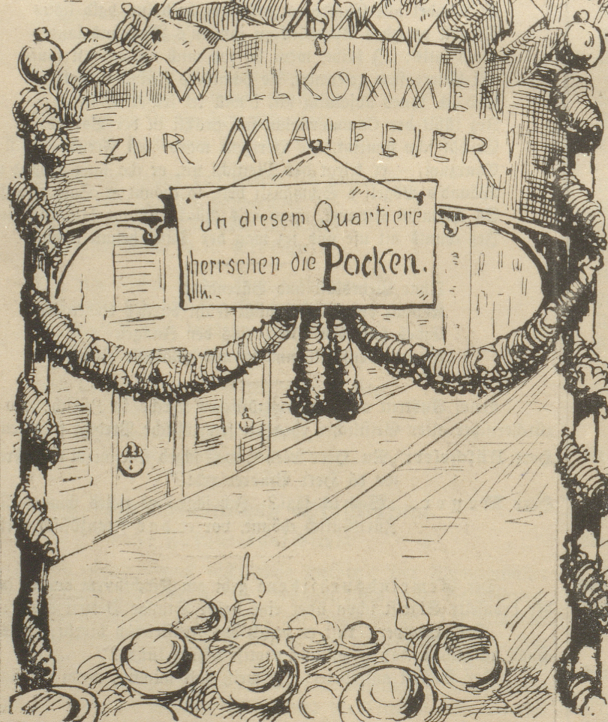 WILLKOMMEN
ZUR MAIFEIER!
In diesem Quartiere
herrschen die Pocken.